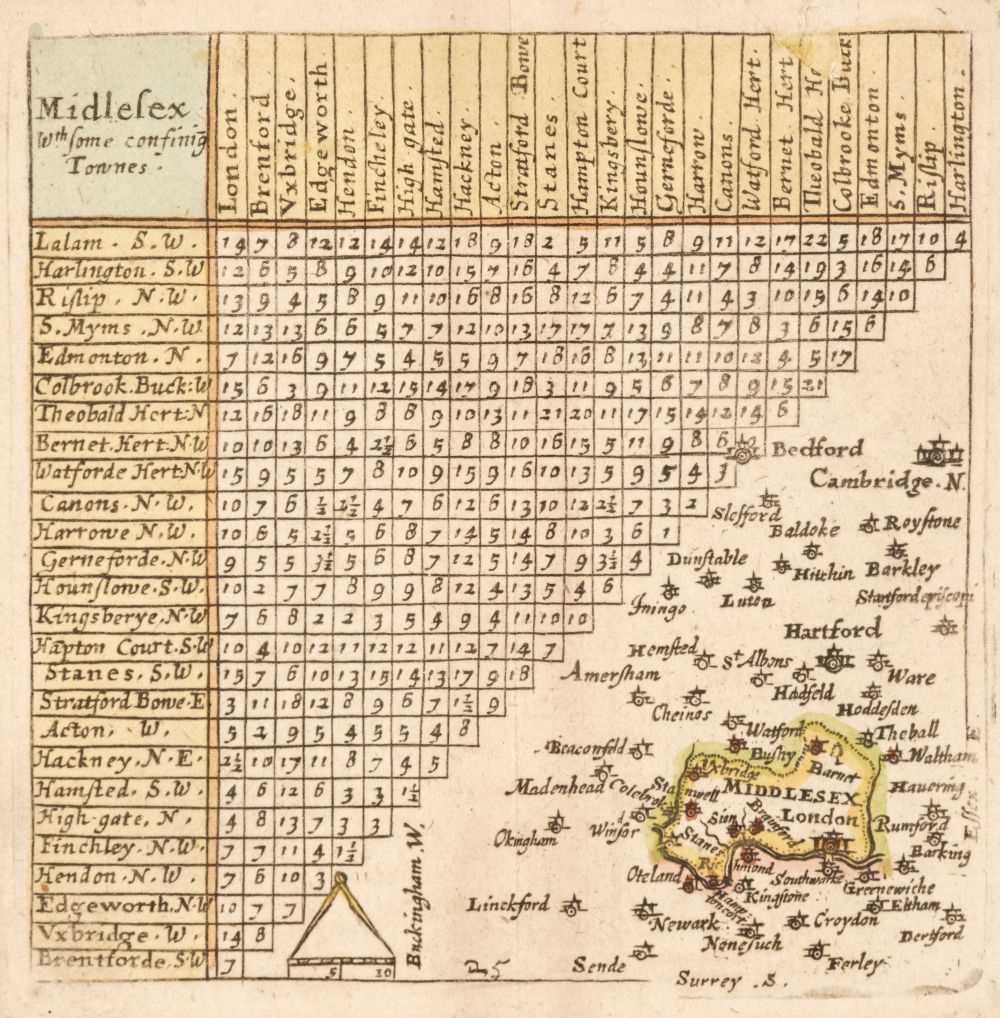 Midleſex
Wth ſome confinig
Townes.
London.
Brenford.
Vxbridge.
Edgeworth
Hendon.
Fincheley.
High gate.
Hamſted.
Hackney.
Acton.
Stratford Bowe
Stanes.
Hampton Court
Kingsbery.
Hounſlowe.
Gerneforde.
Harrow.
Canons.
Watford Hert.
Bernet Hert
Theobald He
Colbrooke Buck
Edmonton
S. Myms.
Riſlip.
Harlington.
Lalam. S. W. 14 7 8 12 12 14 14 12 18 9 18 2 5 11 5 8 9 11 12 17 22 5 18 17 10 4
Harlington. S. W 12 6 5 8 9 10 12 10 15 7 16 4 7 8 4 4 11 7 8 14 19 3 16 14 6
Riſlip. N. W. 13 9 4 5 8 9 11 10 16 8 16 8 12 6 7 4 11 4 3 10 15 6 14 10
S. Myms. N. W. 12 13 13 6 6 5 7 7 12 10 13 17 17 7 13 9 8 7 8 3 6 15 6
Edmonton. N. 7 12 16 9 7 5 4 5 5 9 7 18 16 8 13 11 11 10 12 4 5 17
Colbrook. Buck: W 15 6 3 9 11 12 15 14 17 9 18 3 11 9 5 6 7 8 9 15 21
Theobald Hert: N 12 16 18 11 9 8 8 9 10 13 11 21 20 11 17 15 14 12 14 6
Bernet. Hert. N. W 10 10 13 6 4 2½ 6 5 8 8 10 16 15 5 11 9 8 6
Watforde Hert. N. W 15 9 5 5 7 8 10 9 15 9 16 10 13 5 9 5 4 3
Canons. N. W. 10 7 6 ½ 2½ 4 7 6 12 6 13 10 12 2½ 7 3 2
Harrowe N. W. 10 6 5 2½ 5 6 8 7 14 5 14 8 10 3 6 1
Gerneforde. N. W 9 5 5 3½ 5 6 8 7 12 5 14 7 9 3½ 4
Hounſlowe. S. W. 10 2 7 7 8 9 9 8 12 4 13 5 4 6
Kingsberye. N. W 7 6 8 2 2 3 5 4 9 4 11 10 10
Hāpton Court. S. W 10 4 10 12 11 12 12 11 12 7 14 7
Stanes. S. W. 15 7 6 10 13 15 14 13 17 9 18
Stratford Bowe. E 3 11 18 12 8 9 6 7 1½ 9
Acton. W. 5 2 9 5 4 5 5 4 8
Hackney. N. E. 2½ 10 17 11 8 7 4 5
Hamſted. S. W. 4 6 12 6 3 3 1¼
High-gate. N. 4 8 13 7 3 3
Finchley. N. W. 7 7 11 4 1½
Hendon. N. W. 7 6 10 3
Edgeworth. N. W 10 7 7
Vxbridge. W. 14 8
Brentforde. S. W 7
5 10
Buckingham. W.
25
Bedford
Cambridge. N.
Sleſford
Baldoke
Royſtone
Dunſtable
Hitchin
Barkley
Iningo
Luton
Startford epiſcopi
Hartford
Hemſted
St. Albons
Ware
Amerſham
Hadfeld
Hoddeſden
Cheinos
Watford
Theball
Beaconfeld
Buſhy
Barnet
Waltham
Uxbridge
Madenhead
Colebrok
Stanwell
MIDDLESEX
Havering
London
Eſſex
Okingham
Winſor
Sion
Brainford
Rumford
Stanes
Barking
Richmond
Oteland
Southwarke
Greenewiche
Kingſtone
Eltham
Linckford
Newark
Hamptoncort
Croydon
Dertford
Noneſuch
Sende
Ferley
Surrey. S.